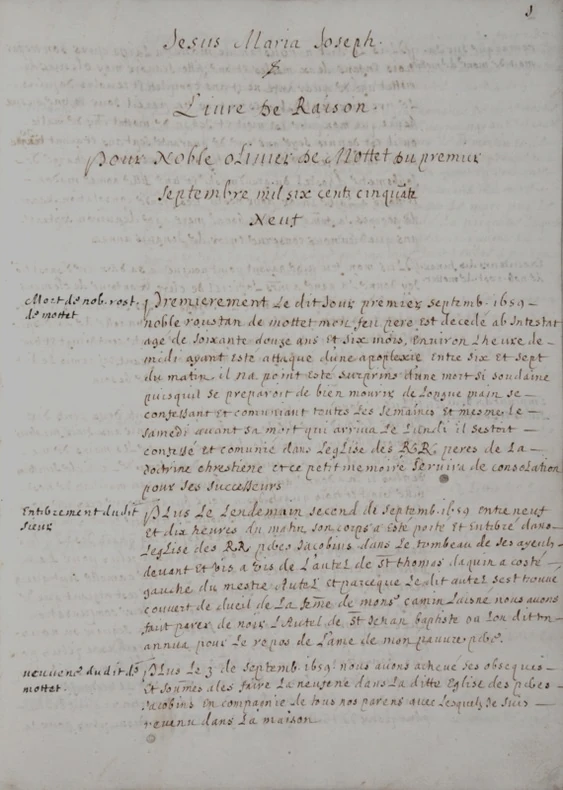 1
Jesus Maria Joseph.
&
Livre De Raison.
Pour Noble olivier De Mottet Du premier
septembre mil six cents cinquāte
Neuf
Mort de nob. rost.
de mottet
Premierement Le dit Jour premier septemb. 1659
noble roustan de mottet mon feu pere est decedé ab Intestat
agé de soixante douze ans et six mois, Environ L'heure de
midi ayant esté attaqué d'une apoplexie Entre six et sept
du matin, il na point esté surprins d'une mort si soudaine
puisquil se preparoit de bien mourir de Longue main se
confessant et comuniant toutes Les semaines et mesme le
samedi avant sa mort qui arriva Le Lundi il sestoit
confessé et comunié dans Leglise des RR. peres de La
doctrine chrestiēne et ce petit memoire servira de consolation
pour ses successeurs
Entibrement du dit
sieur
PLus Le Lendemain second de septemb. 1659 entre neuf
et dix heures du matin son corps a esté porté et Entibré dans
Leglise des RR pères Jacobins dans Le tombeau de ses ayeuls
devant et vis a vis de L'autel de St thomas daquin a costé
gauche du mestre Autel et parceque Le dit autel sest trouvé
couvert de dueil de La feme de monsr camin Laisne nous avons
faict parer de noir L'Autel de St Jehan baptiste ou Lon dit
annua pour Le repos de L'ame de mon pauvre père.
neuvene du dit de
mottet.
PLus Le 3 de septemb. 1659. nous avons achevé ses obseques
et sommes alés faire La neuvene dans La ditte Eglise des pères
Jacobins En compagnie de tous nos parens avec Lesquels Je suis
revenu dans La maison.